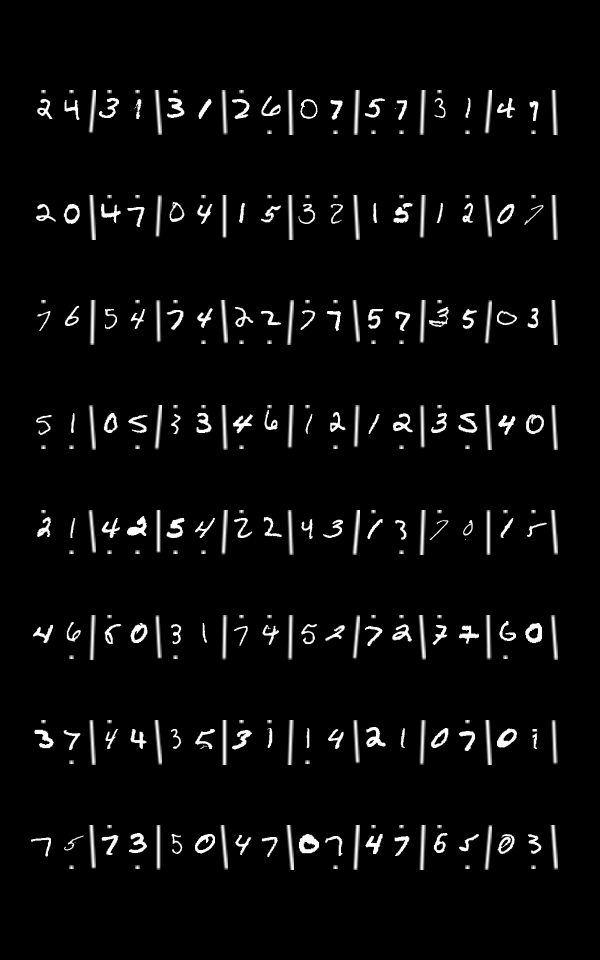 2 4 | 3 1 | 3 1 | 2 6 | 0 7 | 5 7 | 3 1 | 4 7 |
2 0 | 4 7 | 0 4 | 1 5 | 3 2 | 1 5 | 1 2 | 0 7 |
7 6 | 5 4 | 7 4 | 2 2 | 7 7 | 5 7 | 3 5 | 0 3 |
5 1 | 0 5 | 3 3 | 4 6 | 1 2 | 1 2 | 3 5 | 4 0 |
2 1 | 4 2 | 5 4 | 2 2 | 4 3 | 1 3 | 7 0 | 1 5 |
4 6 | 6 0 | 3 1 | 7 4 | 5 2 | 7 2 | 7 7 | 6 0 |
3 7 | 4 4 | 3 5 | 3 1 | 1 4 | 2 1 | 0 7 | 0 1 |
7 5 | 7 3 | 5 0 | 4 7 | 0 7 | 4 7 | 6 5 | 0 3 |